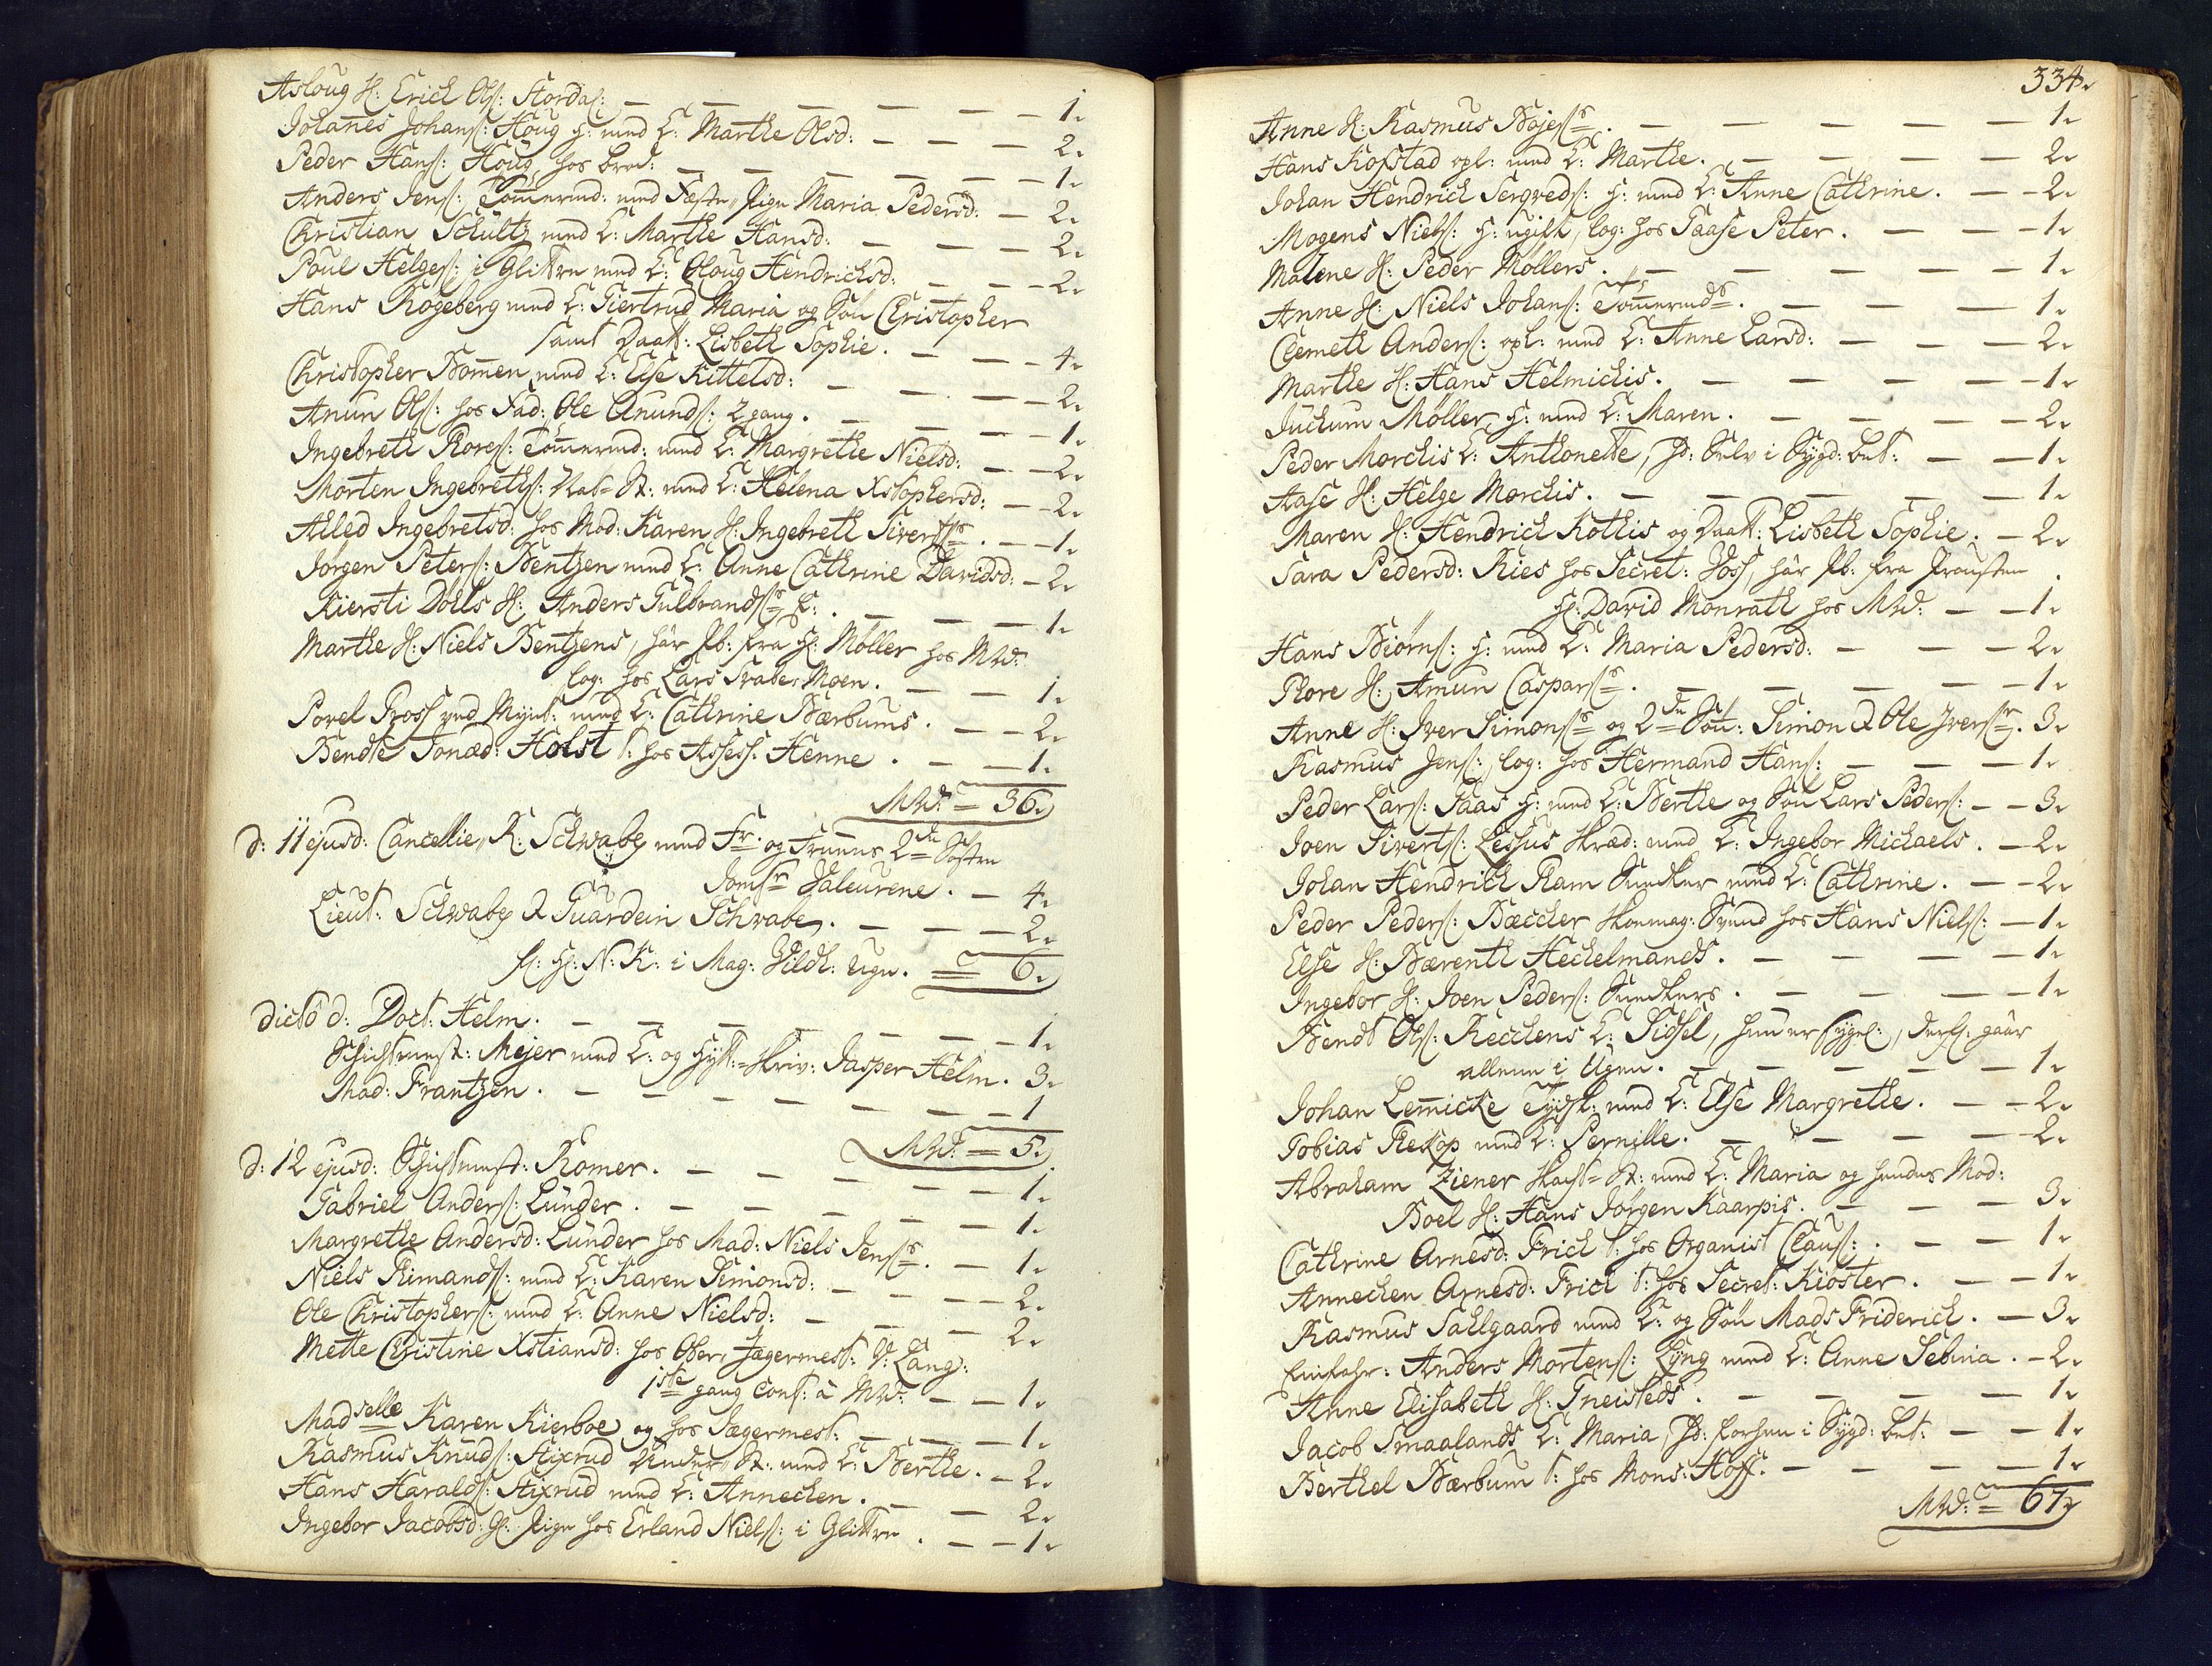 Asloug H: Erich Ols: Stordal: — — — — — 1.
Johanes Johans: Houg H: med K: Marthe Olsd: — — — 2.
Peder Hans: Houg hos brod: — — — — — 1.
Anders Jens: Tömermd: med Fæste Pige Maria Pedersd: — 2.
Christian Schultz med K: Marthe Hansd: — — — 2.
Poul Helges: i Glittre med K: Oloug Hendrichsd: — — 2.
Hans Rogeberg med K: Giertrud Maria og Søn Christopher
samt Daatt: Lisbeth Sophie. — — — 4.
Christopher Bömen med K: Else Kittelsd: — — — 2.
Anun Ols: hos Fad: Ole Anunds: 2 gang. — — — 1.
Ingebreth Thores: Tömermd: med K: Margrethe Nielsd: — 2.
Morten Ingebreths: St: med K: Helena Xstophersd: — 2.
Alled Ingebretsd: hos Mod: Karen H: Ingebreth Siverss. — 1.
Jørgen Peters: Bentzen med K: Anne Cathrine Davidsd: — 2.
Kiersti Dölls H: Anders Gulbrands — — — 1.
Marthe H: Niels Bentzens, här Sb: fra H: Möller hos Mld:
log: hos Lars Svabe Moen. — — 1.
Povel Pross ved Mynt: med K: Cathrine Bærbums. — — 2.
Bendte Jonæd: Holst t: hos Assess: Henne. — — 1.
Mld: = 36.
d: 11 ejusd: Cancellie R: Schwabe med Fr: og Fruens 2de Søstre
Jomfr Valeurene. — 4.
Lieut: Schwabe & Guardein Schwabe. — — — 2.
H: N: K: i Mag: Hildh: Uge. = 6.
dicto d: Doct: Helm. — — — — — — 1.
Mejer med K: og Hytt: Skriv: Jasper Helm. 3.
Mad: Frantzen. — — — — — — 1
Mld: = 5.
d: 12 ejusd: Römer. — — — — — 1.
Gabriel Anders: Lunder. — — — — — 1.
Margrethe Andersd: Lunder hos Mad: Niels Jens. — 1.
Niels Rimands: med K: Karen Simonsd: — — — 2.
Ole Christophers: med K: Anne Nielsd: — — 2.
Mette Christine Xstiansd: hos Ober Jægermest: V: Lang:
1ste gang Conf: a Mld: — — 1.
Madselle Karen Kierboe og hos Jægermest: — — 1.
Rasmus Knuds: Stixrud Under St: med K: Berthe. — 2.
Hans Haralds: Stixrud med K: Annechen. — — 2.
Ingebor Jacobsd: Pige hos Erland Niels: i Glittre. — — 1.
334.
Anne H: Rasmus Bøjes. — — — — — 1.
Hans Kofstad opl: med K: Marthe. — — — — 2.
Johan Hendrich Sergveds: H: med K: Anne Cathrine. — 2.
Mogens Niels: H: ugift, log: hos Saase Peter. — — 1.
Malene H: Peder Møllers. — — — — — 1.
Anne H: Niels Johans: Tömermds. — — — — 1.
Clemeth Anders: opl: med K: Anne Larsd: — — — 2.
Marthe H: Hans Helmichis. — — — — 1.
Juchum Møller H: med K: Maren. — — — — 2.
Peder Morchis K: Anthonette, Hd: Selv i Sygd: bet: — — 1.
Aase H: Helge Morchis. — — — — — 1.
Maren H: Hendrich Kothis og Daatt: Lisbeth Sophie. — 2.
Sara Pedersd: Ries hos Secret: Joss, här Sb: fra Prousten
H: David Monrath hos Mld: — — 1.
Hans Biørns: H: med K: Maria Pedersd: — — — 2.
Thore H: Amun Caspars. — — — — — 1.
Anne H: Iver Simons og 2de Søn: Simon & Ole Ivers. 3.
Rasmus Jens:, log: hos Hermand Hans: — — — 1.
Peder Lars: Saas H: med K: Berthe og Søn Lars Peders: — 3.
Joen Siverts: Lessus Skræd: med K: Ingebor Michaels. — 2.
Johan Hendrich Ram Snedker med K: Cathrine. — 2.
Peder Peders: Bæccher Skomag: Svend hos Hans Niels: — 1.
Else H: Bærenth Heckelmands. — — — — 1.
Ingebor H: Joen Peders: Snedkers. — — — — 1.
Bendt Ols: Recchens K: Sidsel, hun er sygel:, derfor gaar
allene i Ugen. — — — — — 1.
Johan Lemicke Tydsk: med K: Else Margrethe. — — 2.
Tobias Rekop med K: Pernille. — — — — 2.
Abraham Ziener St: med K: Maria og hendes Mod:
Boel H: Hans Jørgen Kaarpis. — — — 3.
Cathrine Arnesd: Frich t: hos Organist Claus: — — 1.
Annechen Arnesd: Frich t: hos Secret: Kioster. — — 1.
Rasmus Sahlgaard med K: og Søn Mads Friderich. — 3.
Einfahr: Anders Mortens: Lyng med K: Anne Sebina. — 2.
Anne Elisabeth H: Gneisteds. — — — — 1.
Jacob Smaalands K: Maria, Hd: forhen i Sygd: bet: — — 1.
Berthel Bærbum t: hos Mons: Hoff. — — — — 1.
Mld: = 67.